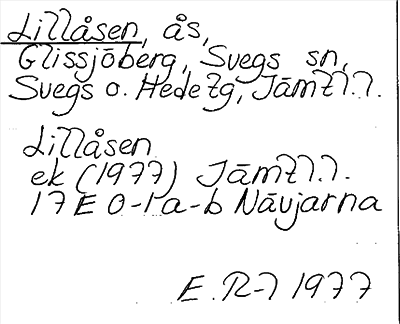 Lillåsen, ås,
Glissjöberg, Svegs sn,
Svegs o. Hede tg, Jämtl.l.
Lillåsen
ek (1977) Jämtl.l.
17E 0-1a-b Nävjarna
E. R-l 1977